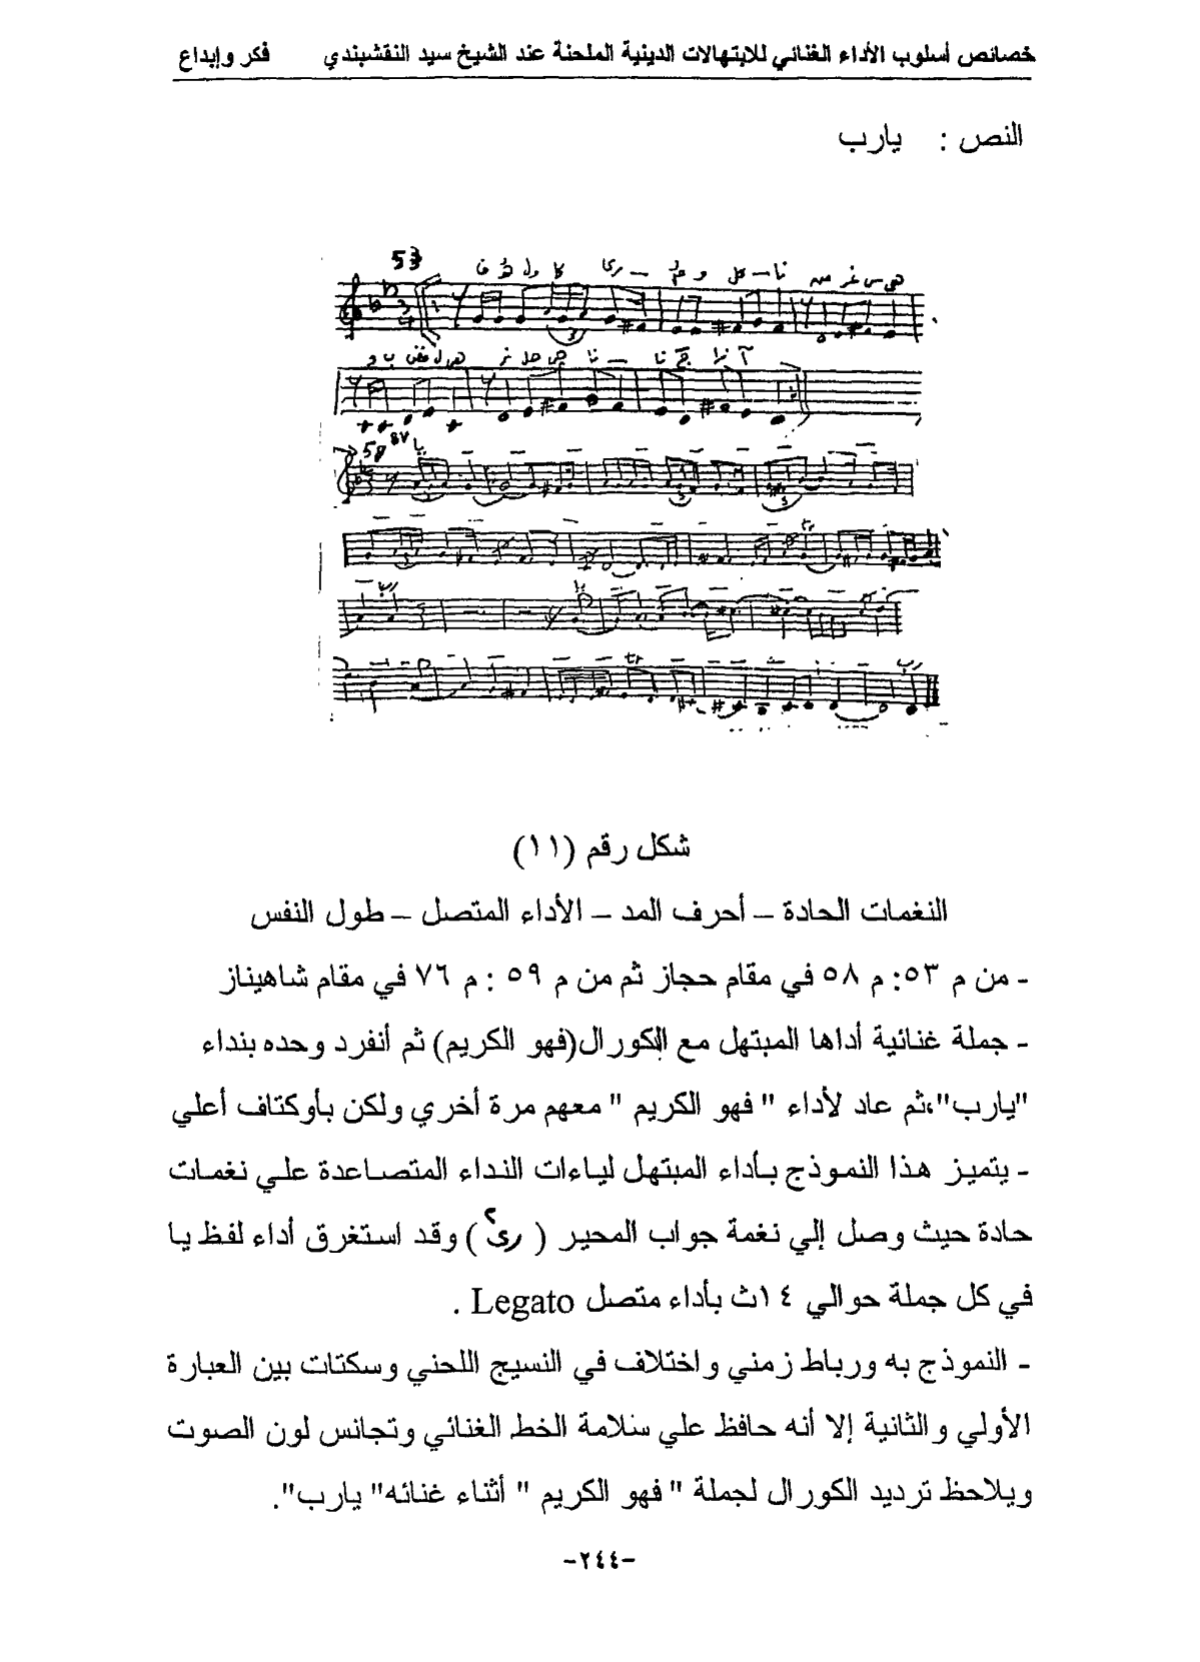 خصائص أسلوب الأداء الغنائي للابتهالات الدينية الملحنة عند الشيخ سيد النقشبندي فكر وإبداع
النص : يارب
53
شكل رقم (١١)
النغمات الحادة – أحرف المد – الأداء المتصل – طول النفس
- من م ٥٣: م ٥٨ في مقام حجاز ثم من م ٥٩ : م ٧٦ في مقام شاهيناز
- جملة غنائية أداها المبتهل مع الكورال(فهو الكريم) ثم أنفرد وحده بنداء
"يارب"،ثم عاد لأداء " فهو الكريم " معهم مرة أخري ولكن بأوكتاف أعلي
- يتميز هذا النموذج بأداء المبتهل لياءات النداء المتصاعدة علي نغمات
حادة حيث وصل إلي نغمة جواب المحير ( رى٢) وقد استغرق أداء لفظ يا
في كل جملة حوالي ١٤ث بأداء متصل Legato .
- النموذج به ورباط زمني واختلاف في النسيج اللحني وسكتات بين العبارة
الأولي والثانية إلا أنه حافظ علي سلامة الخط الغنائي وتجانس لون الصوت
ويلاحظ ترديد الكورال لجملة " فهو الكريم " أثناء غنائه" يارب".
-٢٤٤-